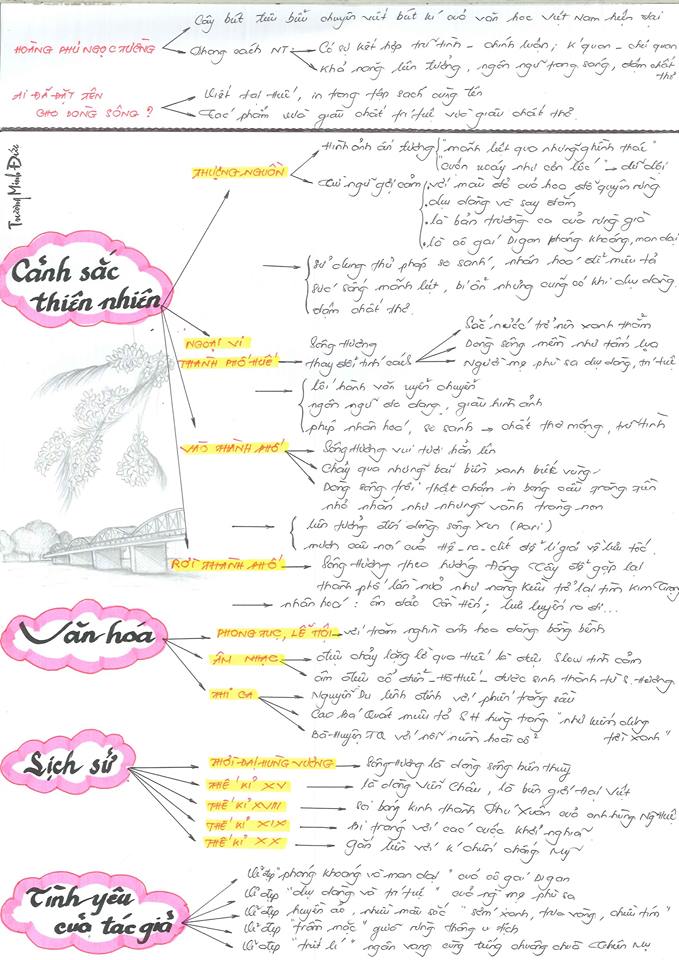 Cây bút tiêu biểu chuyên viết bút kí của văn học Việt Nam hiện đại
HOÀNG PHỦ NGỌC TƯỜNG
Phong cách NT
Có sự kết hợp trữ tình - chính luận; k quan - chủ quan
Khả năng liên tưởng, ngôn ngữ trong sáng, đậm chất thơ
AI ĐÃ ĐẶT TÊN
CHO DÒNG SÔNG?
Viết tại Huế, in trong tập sách cùng tên
Tác phẩm vừa giàu chất trí tuệ vừa giàu chất thơ.
Trương Minh Đức
Cảnh sắc
thiên nhiên
THƯỢNG NGUỒN
Hình ảnh ấn tượng
"mãnh liệt qua những ghềnh thác"
"cuộn xoáy như cơn lốc" → dữ dội
Từ ngữ gợi cảm
với màu đỏ của hoa đỗ quyên rừng
dịu dàng và say đắm
là bản trường ca của rừng già
là cô gái Digan phóng khoáng, man dại
sử dụng thủ pháp so sánh, nhân hoá để miêu tả
sức sống mãnh liệt, bí ẩn nhưng cũng có khi dịu dàng.
đậm chất thơ.
NGOẠI VI
THÀNH PHỐ HUẾ
Sông Hương
thay đổi tính cách
Sắc nước trở nên xanh thẳm
Dòng sông mềm như tấm lụa
Người mẹ phù sa dịu dàng, trí tuệ
lối hành văn uyển chuyển
ngôn ngữ đa dạng, giàu hình ảnh
phép nhân hoá, so sánh → chất thơ mộng, trữ tình
VÀO THÀNH PHỐ
Sông Hương vui tươi hẳn lên
Chảy qua những bãi biền xanh biếc vùng
Dòng sông trôi thật chậm in bóng cầu tràng tiền
nhỏ nhắn như những vành trăng non
liên tưởng đến dòng sông Xen (Pari)
mượn câu nói của Hê-ra-clit để lí giải về lưu tốc.
RỜI THÀNH PHỐ
Sông Hương theo hướng Đông Tây để gặp lại
thành phố lần nữa như nàng Kiều trở lại tìm Kim Trọng
nhân hoá: ôm đảo Cồn Hến; lưu luyến ra đi...
Văn hóa
PHONG TỤC, LỄ HỘI
với trăm nghìn ánh hoa đăng bồng bềnh
ÂM NHẠC
điệu chảy lặng lờ qua Huế là điệu slow tình cảm
âm điệu cổ điển - Huế - được sinh thành từ S. Hương
THI CA
Nguyễn Du lênh đênh với phiến trăng sầu
Cao Bá Quát miêu tả SH hùng tráng "như kiếm dựng
trời xanh"
Bà Huyện TQ với nỗi niềm hoài cổ
Lịch sử
THỜI ĐẠI HÙNG VƯƠNG
Sông Hương là dòng sông biên thuỳ
THẾ KỈ XV
là dòng Viễn Châu, là biên giới Đại Việt
THẾ KỈ XVIII
soi bóng kinh thành Phú Xuân của anh hùng Ng Huệ
THẾ KỈ XIX
Bi tráng với các cuộc khởi nghĩa
THẾ KỈ XX
gắn liền với k chiến chống Mỹ
Tình yêu
của tác giả
Vẻ đẹp "phóng khoáng và man dại" của cô gái Digan
Vẻ đẹp "dịu dàng và trí tuệ" của ng mẹ phù sa
Vẻ đẹp huyền ảo, nhiều màu sắc "sớm xanh, trưa vàng, chiều tím"
Vẻ đẹp "trầm mặc" giữa rừng thông u tịch
Vẻ đẹp "triết lí" ngân vang cùng tiếng chuông chùa Thiên Mụ